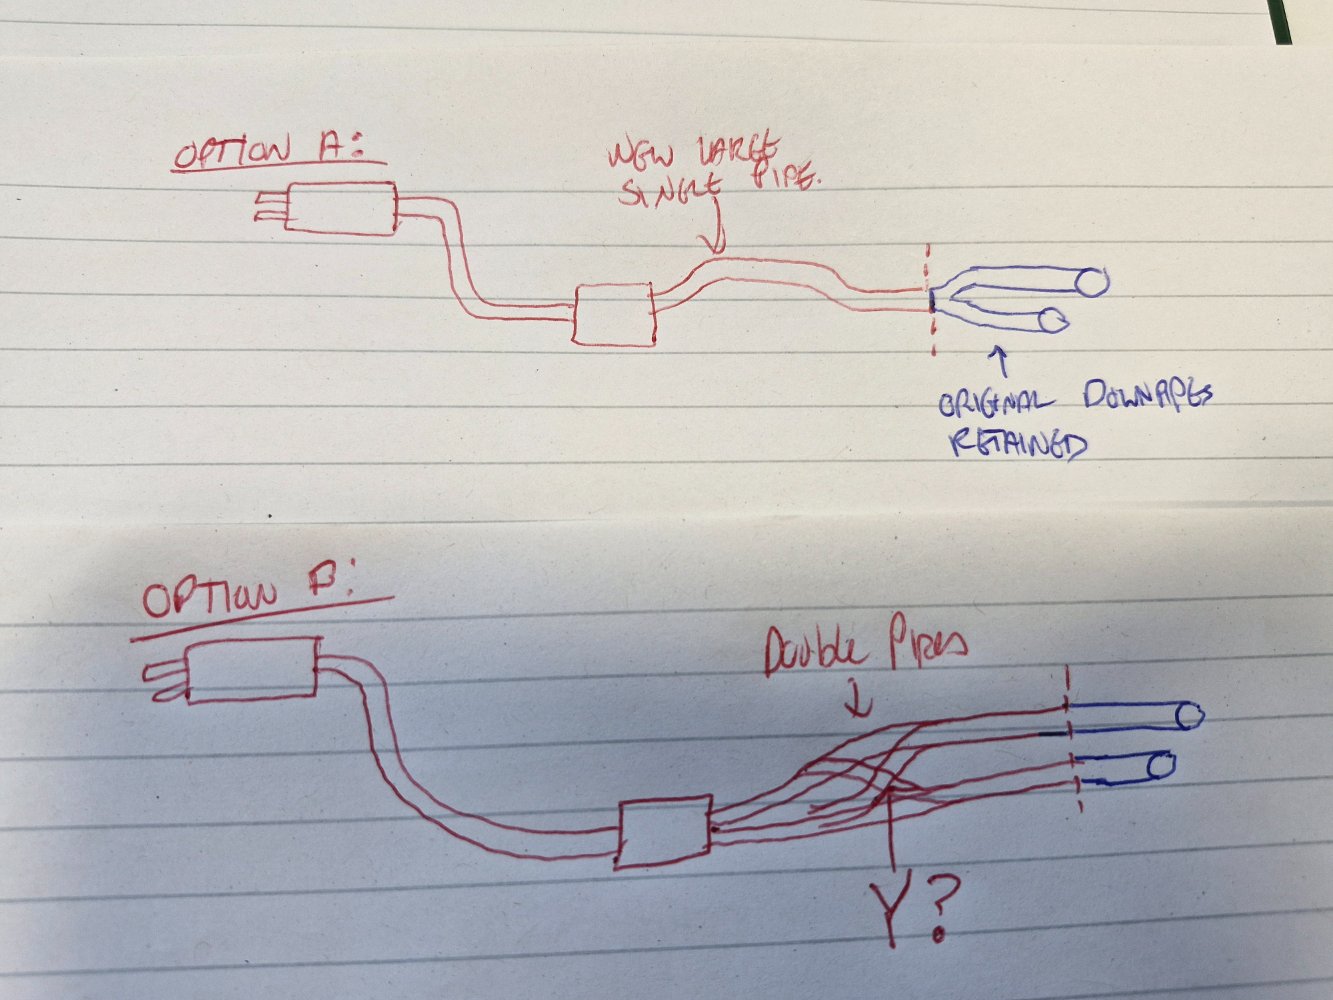 OPTION A:
NEW LARGE
SINGLE PIPE.
ORIGINAL DOWNPIPES
RETAINED
OPTION B:
Double Pipes
Y?